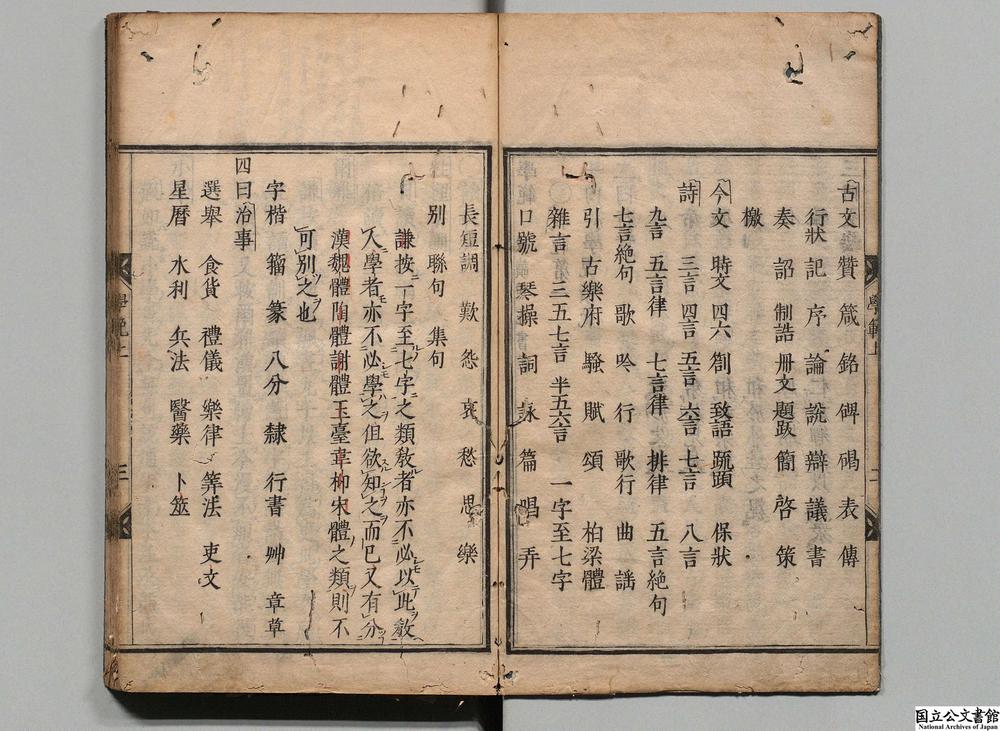 古文 贊 箴 銘 碑 碣 表 傳
行狀 記 序 論 說 辯 議 書
奏 詔 制誥 册文 題跋 簡 啓 策
檄
今文 時文 四六 劄 致語 䟽頭 保狀
詩 三言 四言 五言 六言 七言 八言
九言 五言律 七言律 排律 五言絶句
七言絶句 歌 吟 行 歌行 曲 謡
引 古樂府 騷 賦 頌 柏梁體
雜言 三五七言 半五六言 一字至七字
口號 琴操 詞 詠 篇 唱 弄
學範上
二
長短調 歎 怨 哀 愁 思 樂
别 聯句 集句
謙按一丁字至七字之類敎者亦不必以此敎
人學者亦不必學之但欲知之而已又有分
漢魏體陶體謝體玉臺韋柳宋體之類則不
可别之也
字 楷 籀 篆 八分 隸 行書 艸 章草
四曰治事
選舉 食貨 禮儀 樂律 筭法 吏文
星曆 水利 兵法 醫藥 卜筮
三
国立公文書館
National Archives of Japan